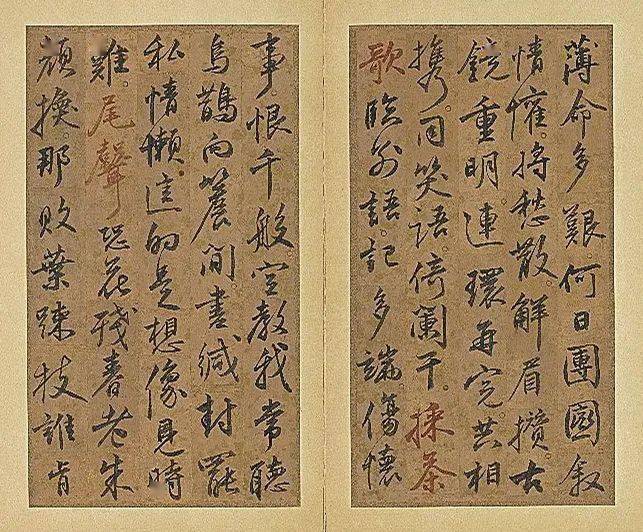 薄命多艱何日團圓敘
情懽將愁散解眉攢古
鏡重明連環再完共相
攜同笑語倚闌干採茶
歌臨別語記多端傷懷
事恨千般空教我常聽
烏鵲向簷間書緘封罷
私情懶這的是想像見時
難尾聲恐花殘春老朱
顏換那敗葉踈枝誰肯